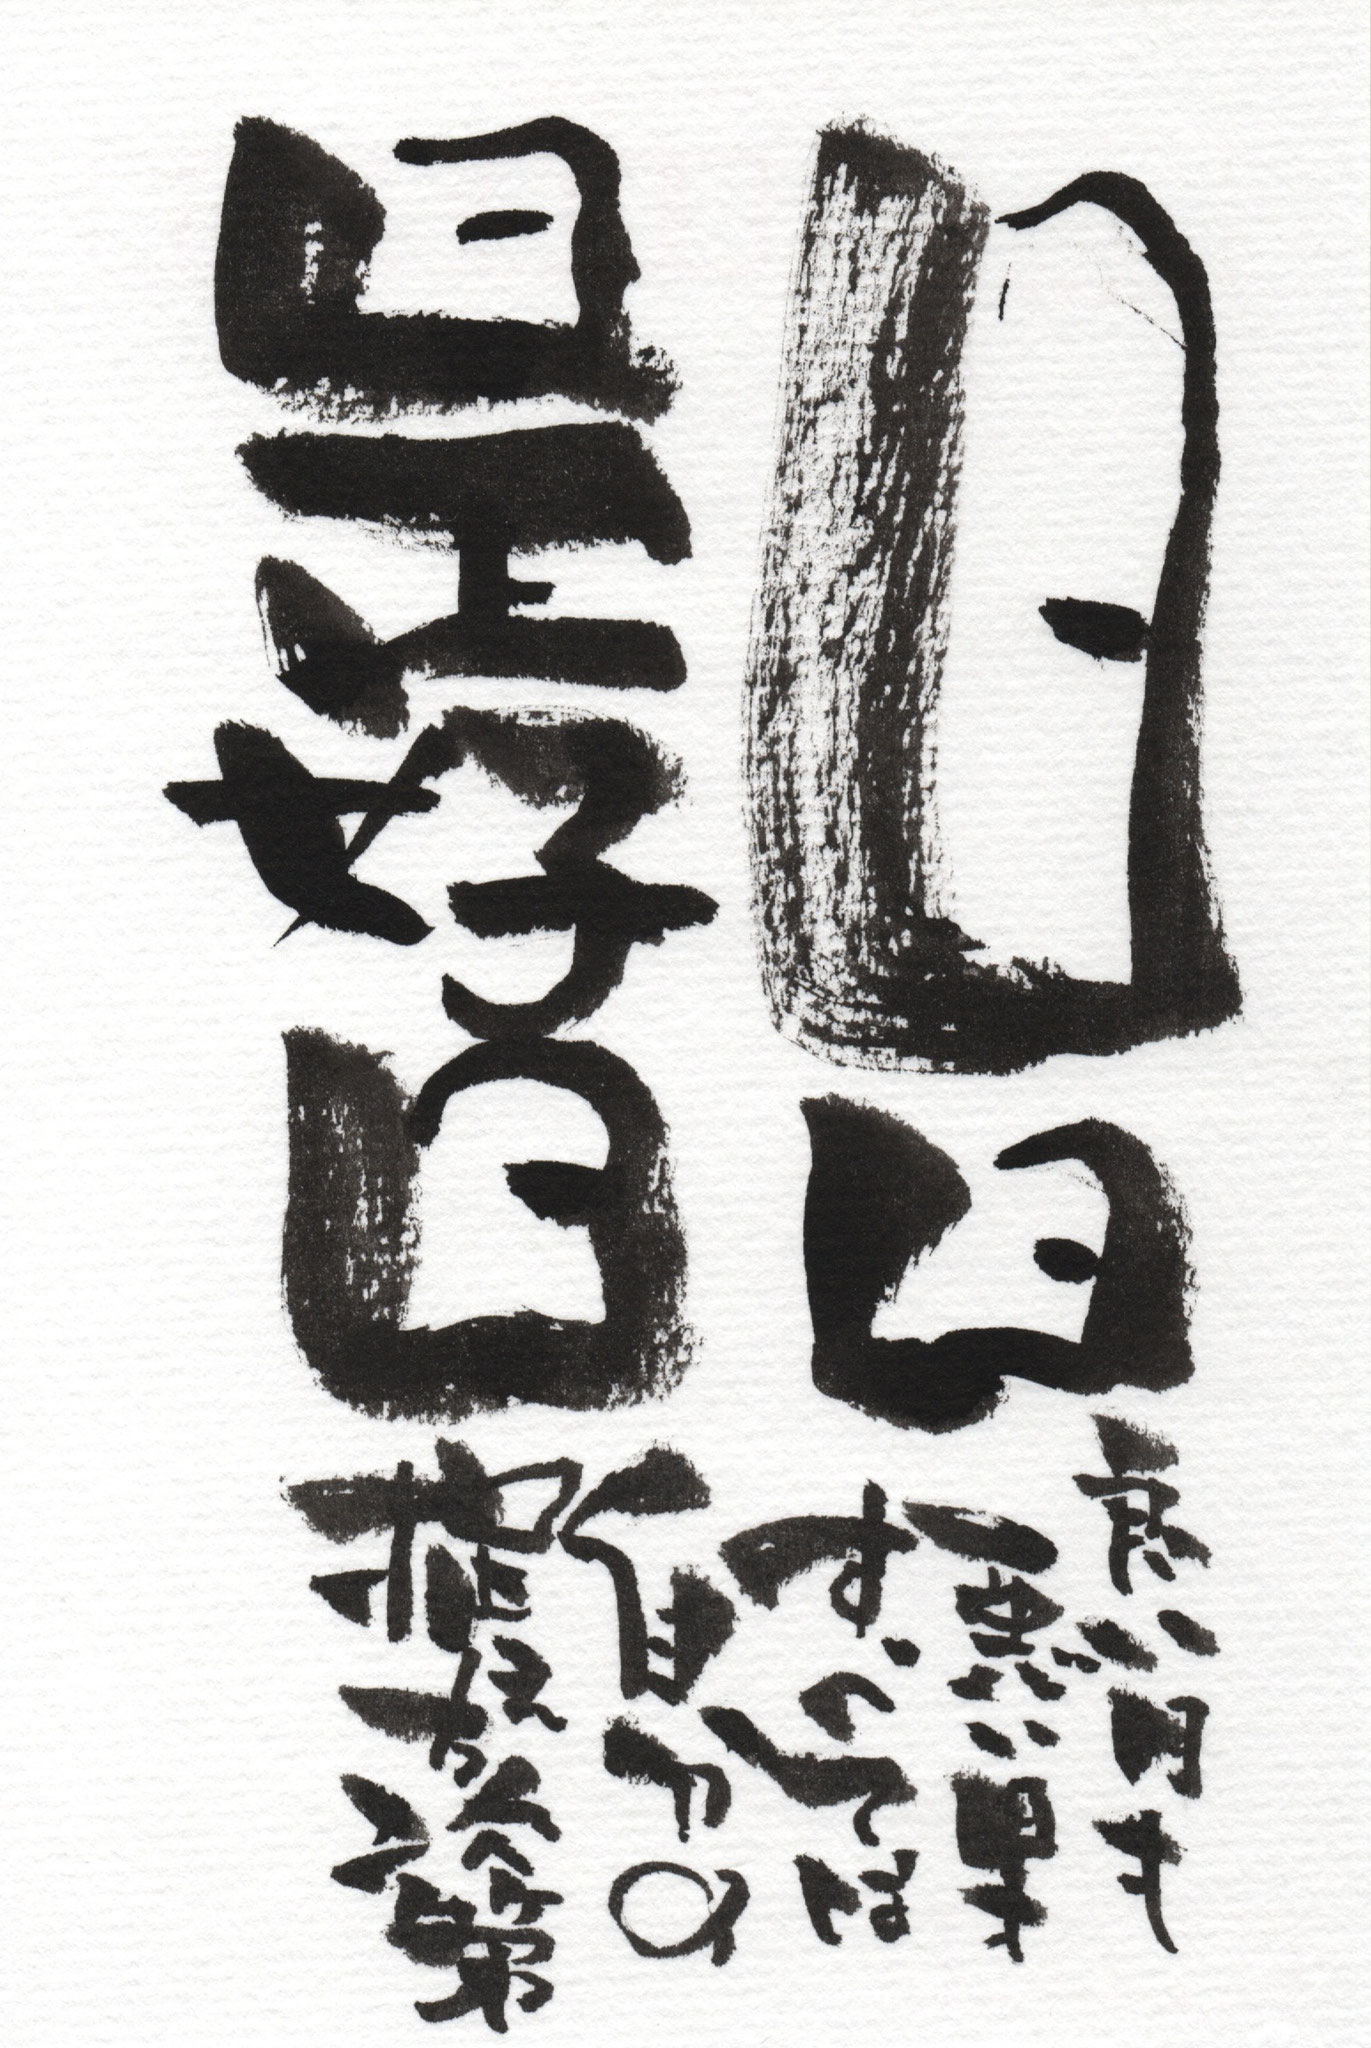 日日
是好日
良い日も
悪い日も
すべては
自分の
捉え方次第